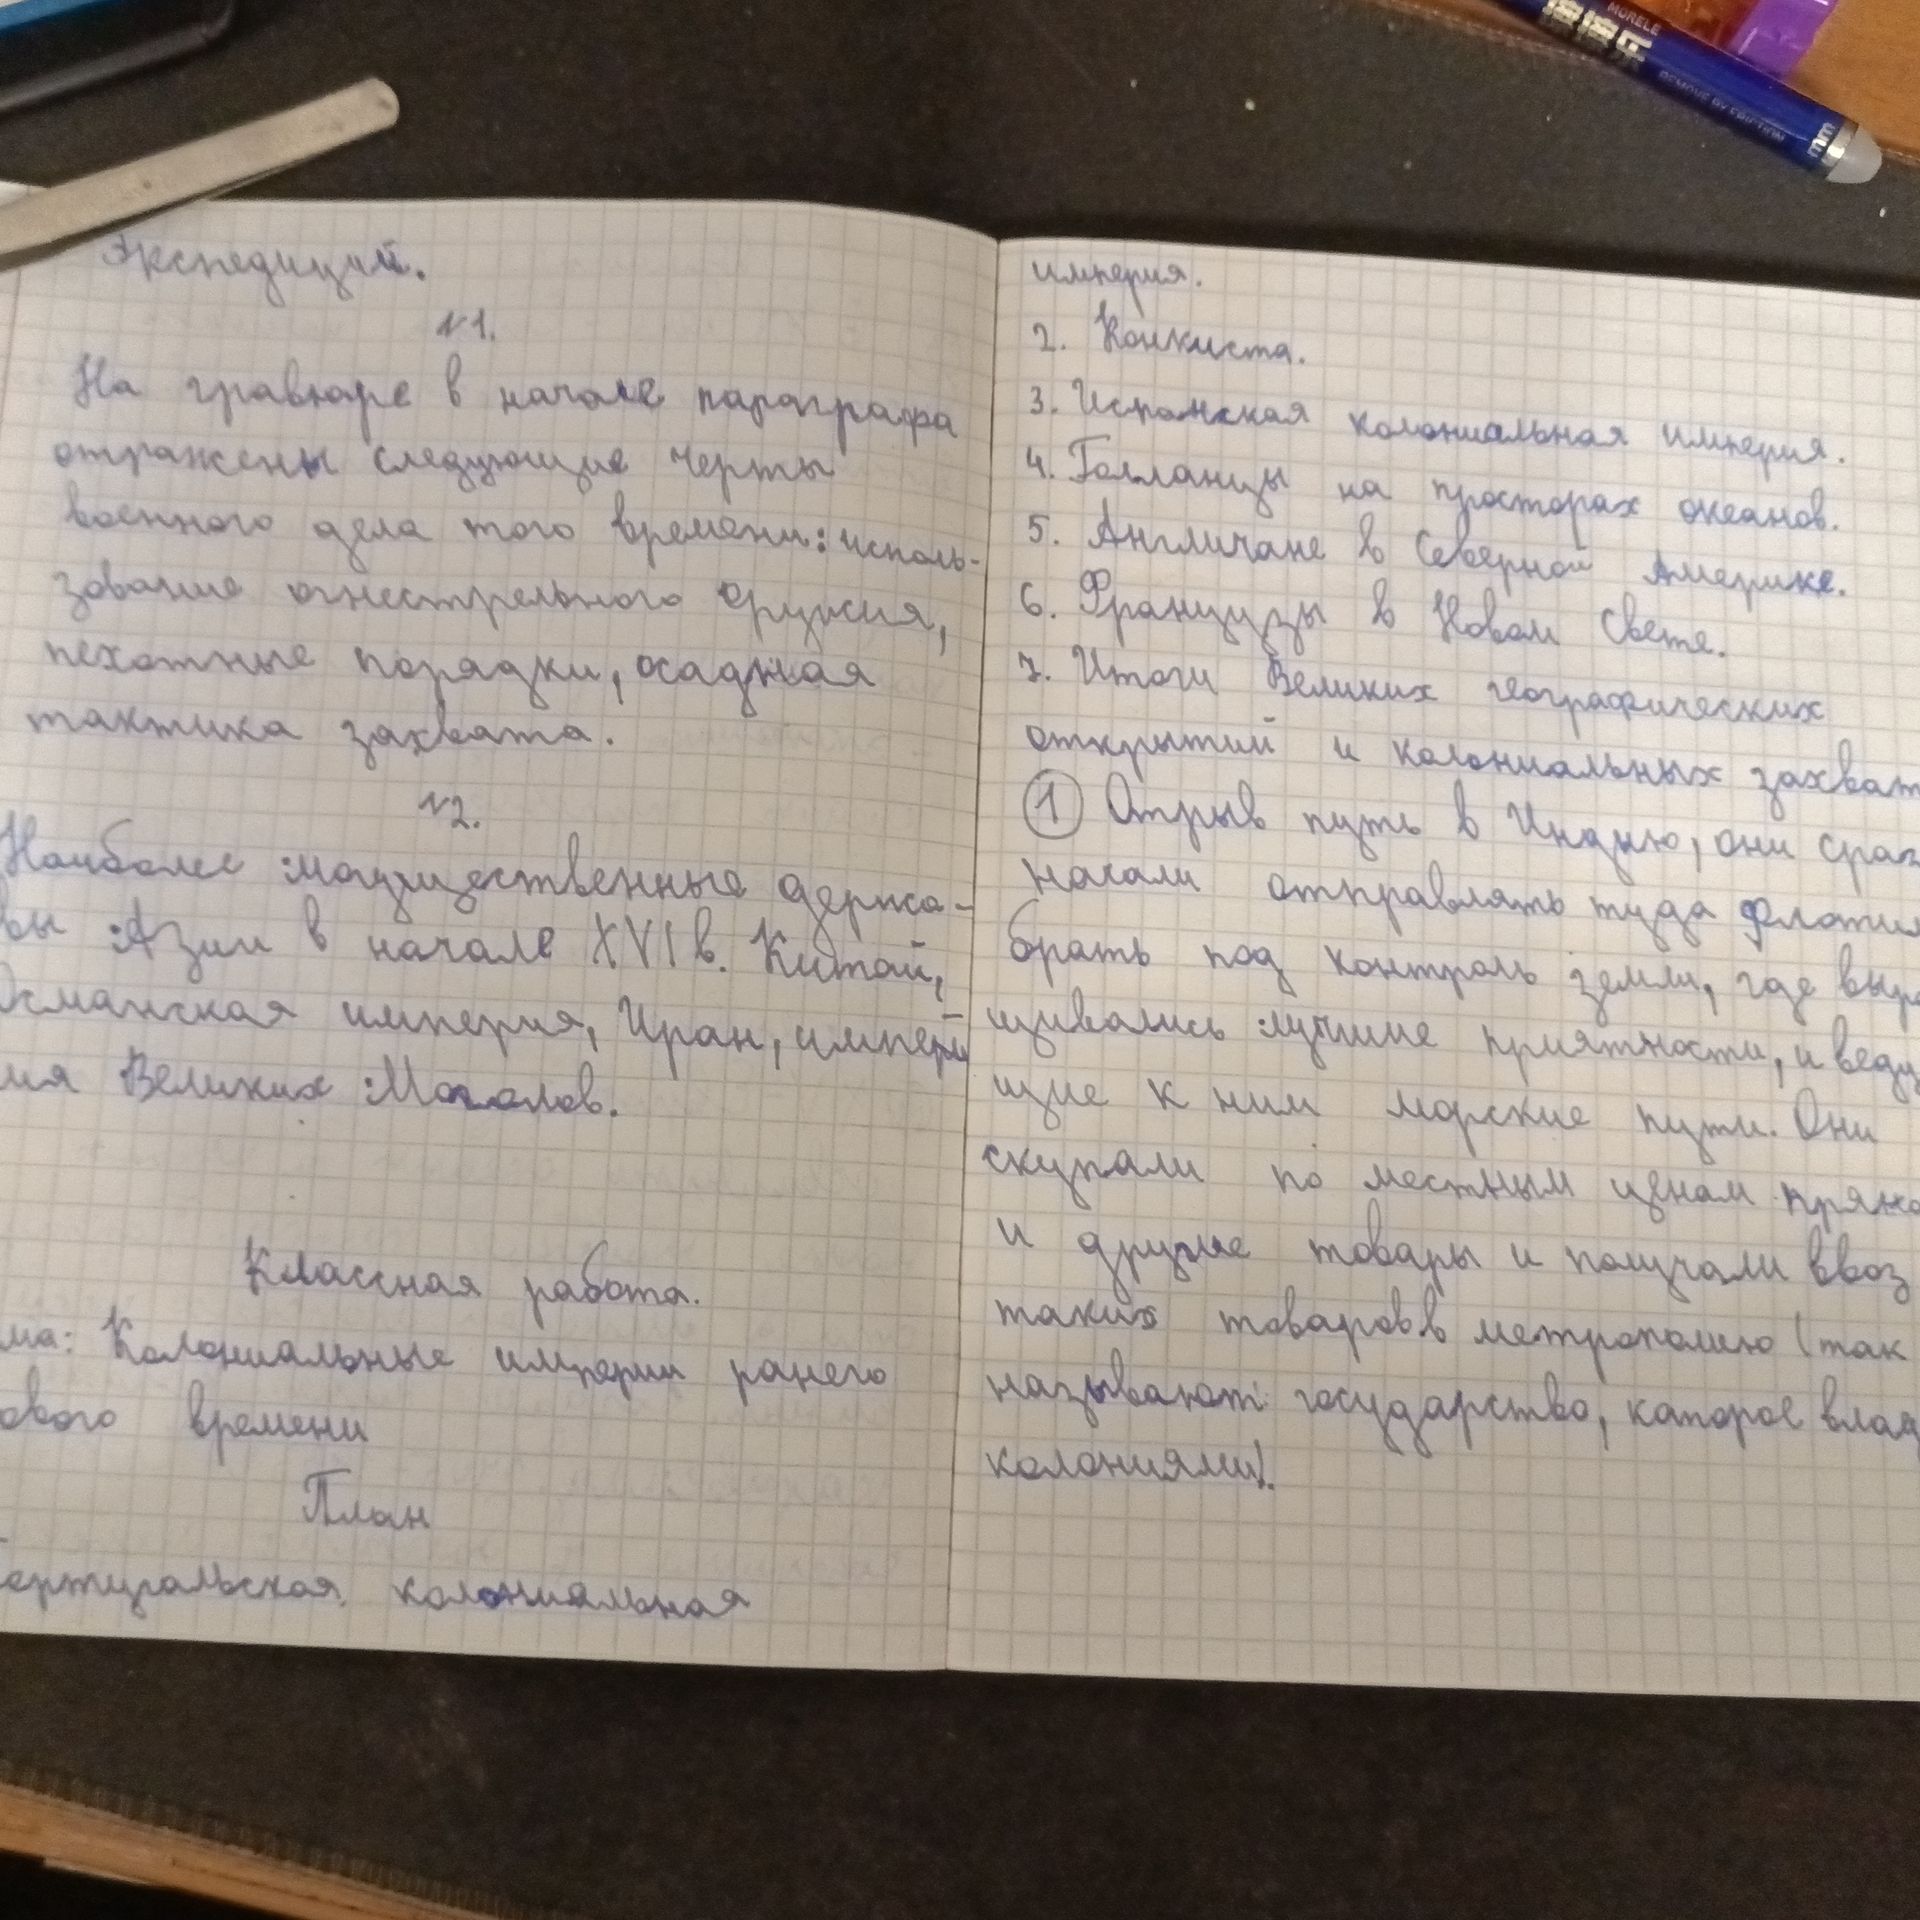 MORELE
REMOVE BY FRICTION
mm
Экспедиций.
№1.
На гравюре в начале параграфа
отражены следующие черты
военного дела того времени: исполь-
зование огнестрельного оружия,
пехотные порядки, осадная
тактика захвата.
№2.
Наиболее могущественные держа-
вы Азии в начале XVI в. Китай,
Османская империя, Иран, импери
ия Великих Моголов.
Классная работа.
ма: Колониальные империи ранего
ового времени
План
Португальская колониальная
империя.
2. Конкиста.
3. Испанская колониальная империя.
4. Голланцы на просторах океанов.
5. Англичане в Северной Америке.
6. Французы в Новом Свете.
7. Итоги Великих географических
открытий и колониальных захват
1 Отрыв путь в Индию, они сраз
начали отправлять туда флотил
брать под контроль земли, где выра
щивались лучшие приятности, и веду
щие к ним морские пути. Они
скупали по местным ценам пряно
и другие товары и получали ввоз
таких товаров в метрополию (так
называют государство, каторое влад
колониями).